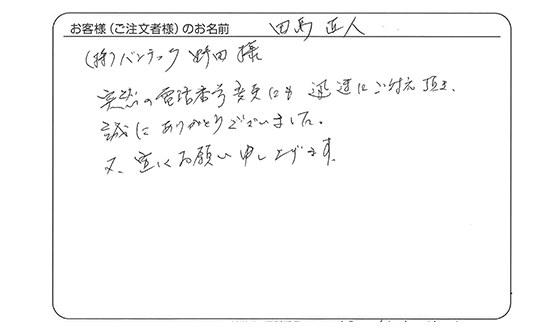 お客様（ご注文者様）のお名前 田島 直人
(株)バンテック 野田 様
突然の電話番号変更にも 迅速にご対応 頂き、
誠に ありがとうございました。
又、宜しくお願い 申し上げます。